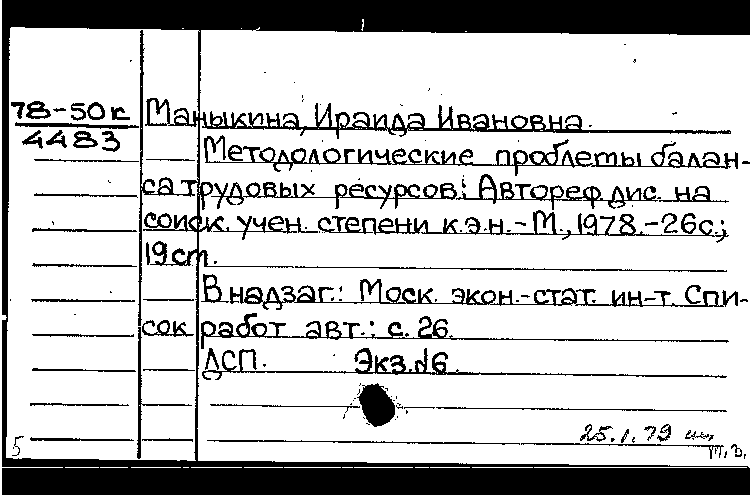 78-50к Маныкина, Ираида Ивановна.
4483
Методологические проблемы балан-
са трудовых ресурсов: Автореф дис. на
соиск. учен. степени к.э.н.-М., 1978.-26с.;
19см.
В надзаг.: Моск. экон.-стат. ин-т. Спи-
сок работ авт.: с. 26.
ДСП. Экз.№6.
25.1.79
5 т.в.